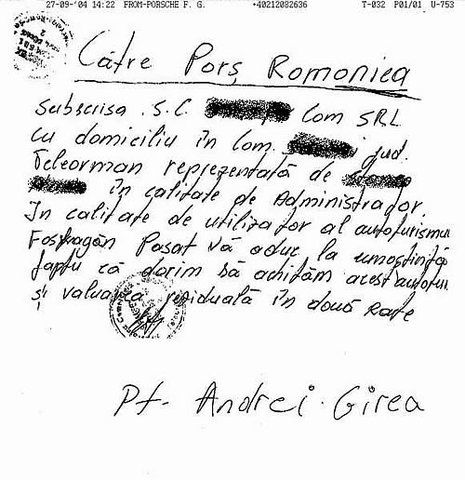 27-09-'04 14:22 FROM-PORSCHE F. G. +40212082636 T-032 P01/01 U-753
Către Porș Romoniea
Subscrisa S.C. Com SRL
cu domiciliu în Com. jud.
Teleorman reprezentată de
în calitate de Administrador
În calitate de utilizator al autoturismu
Fosvagăn Pasat Vă aduc la umoștință
faptu că dorim să achităm acest autotur
și valuarea reziduală în două Rate
Pt. Andrei Girea